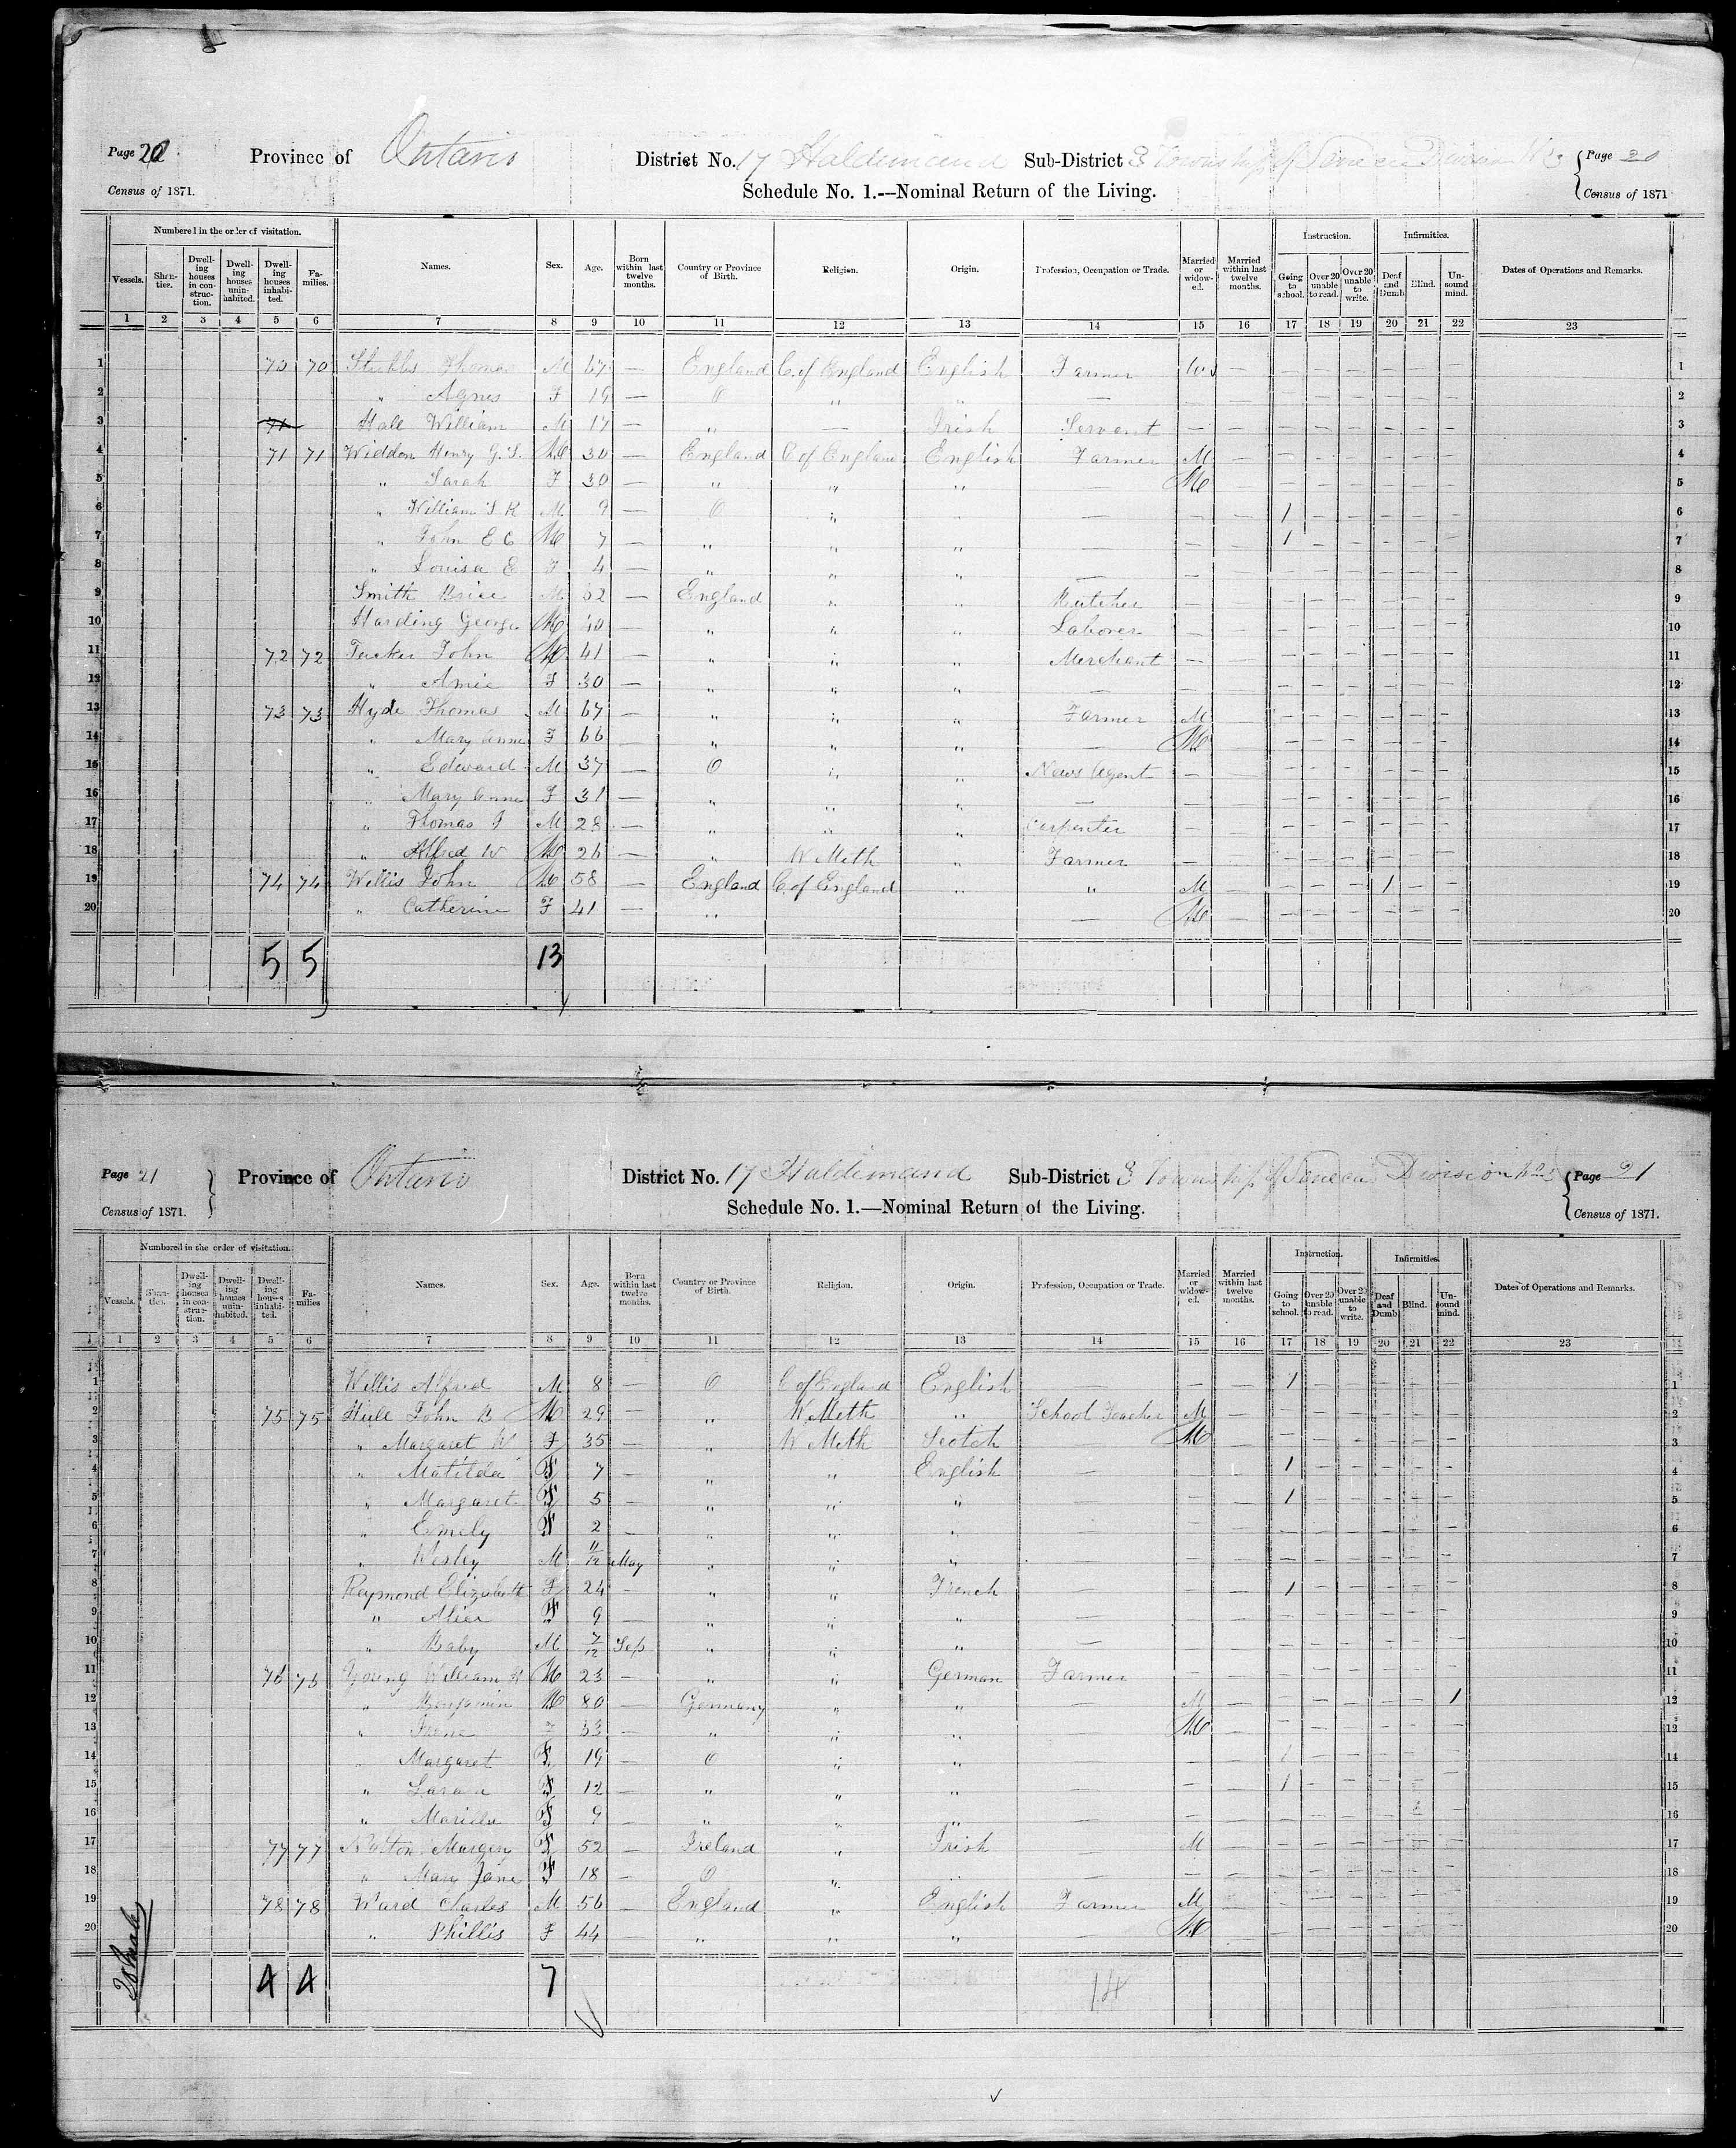 Page 20 Province of Ontario District No. 17 Haldimand Sub-District 3 Township of Seneca Division No 3 Page 20
Census of 1871. Schedule No. 1.--Nominal Return of the Living. Census of 1871
Numbered in the order of visitation. Instruction. Infirmities.
Vessels. Shanties. Dwelling houses in construction. Dwelling houses uninhabited. Dwelling houses inhabited. Families. Names. Sex. Age. Born within last twelve months. Country or Province of Birth. Religion. Origin. Profession, Occupation or Trade. Married or widowed. Married within last twelve months. Going to school. Over 20 unable to read. Over 20 unable to write. Deaf and Dumb. Blind. Unsound mind. Dates of Operations and Remarks.
1 2 3 4 5 6 7 8 9 10 11 12 13 14 15 16 17 18 19 20 21 22 23
1 70 70 Thomas M 67 — England C. of England English Farmer W — — — — — — — 1
2 " Agnes F 19 — " " " — — — — — — — — — 2
3 71 Hall William M 17 — " — Irish Servant — — — — — — — — 3
4 71 71 Widdon Henry G. S. M 30 — England C of England English Farmer M — — — — — — — 4
5 " Sarah F 30 — " " " — M — — — — — — — 5
6 " William S R M 9 — O " " — — — 1 — — — — — 6
7 " John E C M 7 — " " " — — — 1 — — — — — 7
8 " Louisa E F 4 — " " " — — — — — — — — — 8
9 Smith Brice M 62 — England " " Butcher — — — — — — — — 9
10 Harding George M 40 — " " " Laborer — — — — — — — — 10
11 72 72 Tucker John M 41 — " " " Merchant — — — — — — — — 11
12 " Amie F 30 — " " " — — — — — — — — — 12
13 73 73 Hyde Thomas M 67 — " " " Farmer M — — — — — — — 13
14 " Mary Anne F 66 — " " " — M — — — — — — — 14
15 " Edward M 37 — O " " News Agent — — — — — — — — 15
16 " Mary Anne F 31 — " " " — — — — — — — — — 16
17 " Thomas J M 28 — " " " Carpenter — — — — — — — — 17
18 " Alfred W M 26 — " W Meth " Farmer — — — — — — — — 18
19 74 74 Willis John M 58 — England C. of England " " M — — — — 1 — — 19
20 " Catherine F 41 — " " — M — — — — — — — 20
5 5 13
Page 21 Province of Ontario District No. 17 Haldimand Sub-District 3 Township of Seneca Division No 3 Page 21
Census of 1871. Schedule No. 1.—Nominal Return of the Living. Census of 1871.
Numbered in the order of visitation. Instruction. Infirmities.
Vessels. Shanties. Dwelling houses in construction. Dwelling houses uninhabited. Dwelling houses inhabited. Families Names. Sex. Age. Born within last twelve months. Country or Province of Birth. Religion. Origin. Profession, Occupation or Trade. Married or widowed. Married within last twelve months. Going to school. Over 20 unable to read. Over 20 unable to write. Deaf and Dumb Blind. Unsound mind. Dates of Operations and Remarks.
1 2 3 4 5 6 7 8 9 10 11 12 13 14 15 16 17 18 19 20 21 22 23
1 Willis Alfred M 8 — O C of England English — — — 1 — — — — — 1
2 75 75 Hull John B M 29 — " W Meth " School Teacher M — — — — — — — 2
3 " Margaret W F 35 — " W Meth Scotch — M — — — — — — — 3
4 " Matilda F 7 — " " English — — — 1 — — — — — 4
5 " Margaret F 5 — " " " — — — 1 — — — — — 5
6 " Emily F 2 — " " " — — — — — — — — — 6
7 " Wesley M 11/12 May " " " — — — — — — — — — 7
8 Raymond Elizabeth F 24 — " " French — — — 1 — — — — — 8
9 " Alice F 9 — " " " — — — — — — — — — 9
10 " Baby M 7/12 Sep " " " — — — — — — — — — 10
11 76 76 Young William H M 23 — " " German Farmer — — — — — — — — 11
12 " Benjamin M 80 — Germany " " — M — — — — — — 1 12
13 " Irene F 53 — " " " — M — — — — — — — 13
14 Margaret F 19 — O " " — — — 1 — — — — — 14
15 " F 12 — " " " — — — 1 — — — — — 15
16 " Marilla F 9 — " " " — — — — — — — — 16
17 77 77 Margery F 52 — Ireland " Irish — M — — — — — — — 17
18 " Mary Jane F 18 — O " " — — — — — — — — — 18
19 78 78 Ward Charles M 56 — England " English Farmer M — — — — — — — 19
20 " Phillis F 44 — " " " — M — — — — — — — 20
4 4 7 14